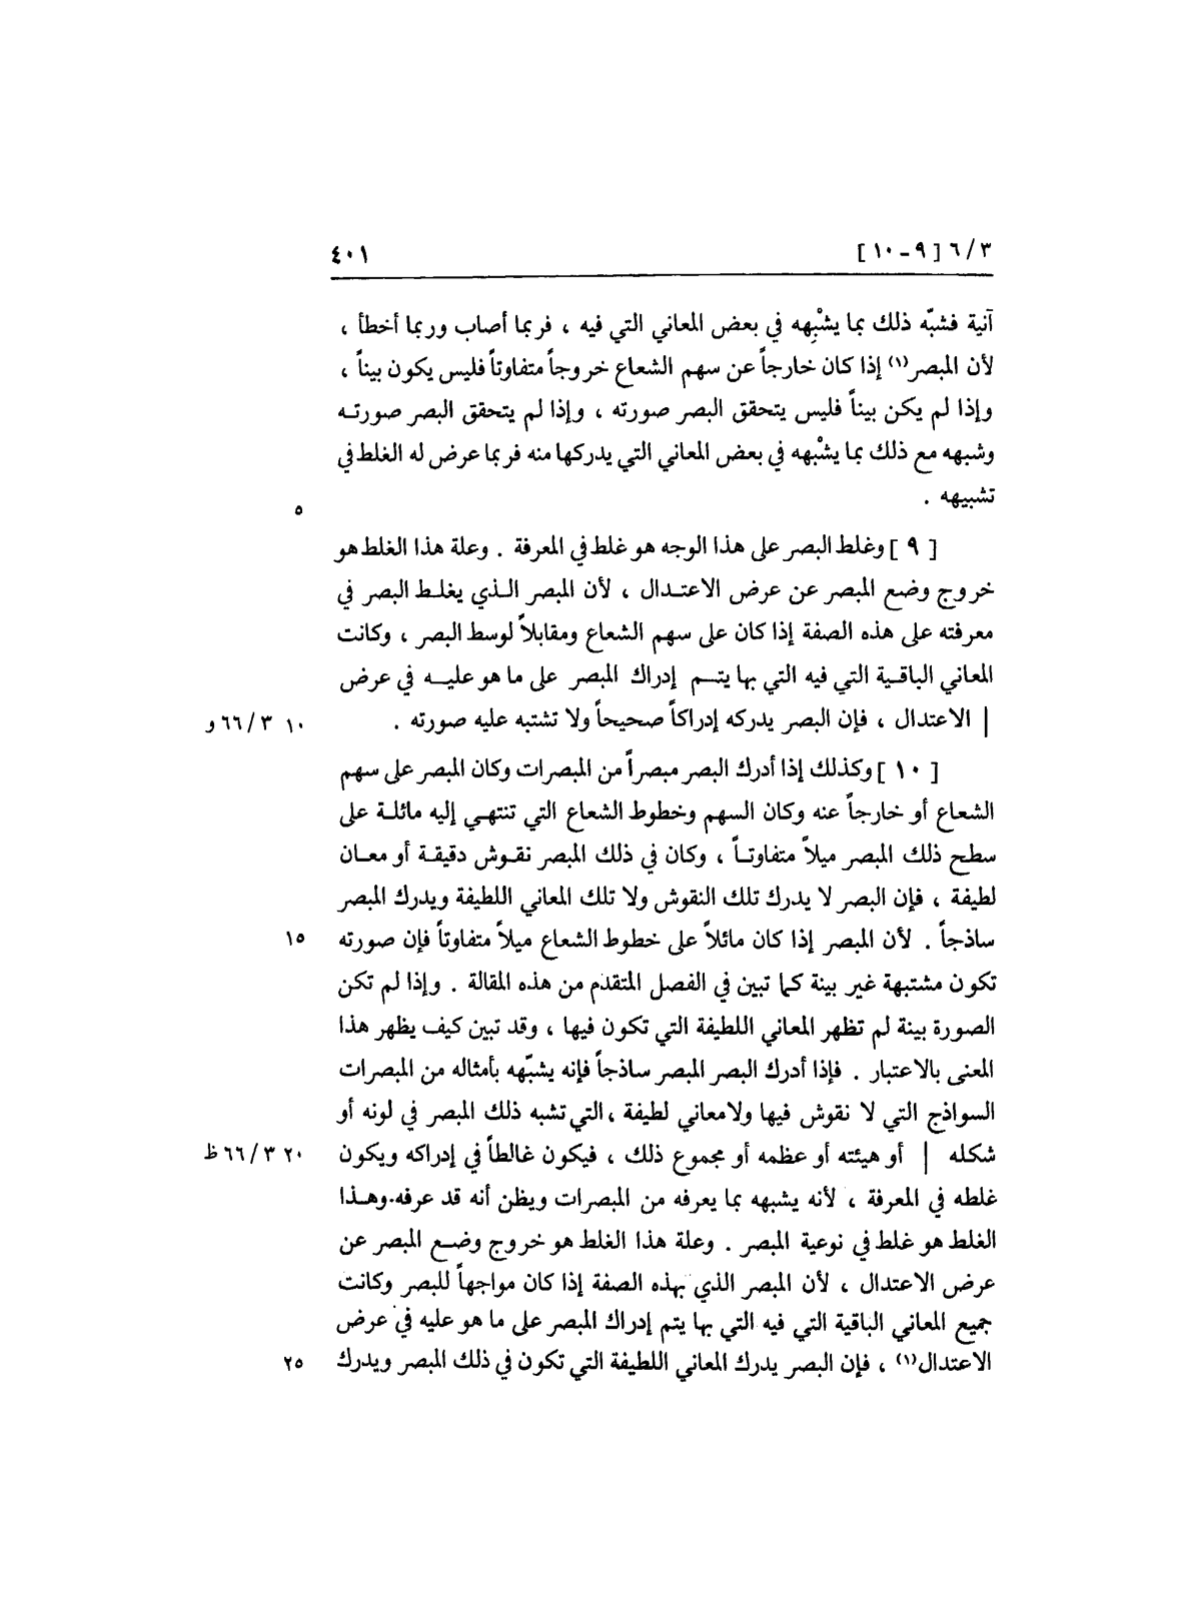 ٣/٦ [٩-١٠] ٤٠١
آنية فشبّه ذلك بما يشْبِهه في بعض المعاني التي فيه ، فربما أصاب وربما أخطأ ،
لأن المبصر(١) إذا كان خارجاً عن سهم الشعاع خروجاً متفاوتاً فليس يكون بيناً ،
وإذا لم يكن بيناً فليس يتحقق البصر صورته ، وإذا لم يتحقق البصر صورتـه
وشبهه مع ذلك بما يشْبهه في بعض المعاني التي يدركها منه فربما عرض له الغلط في
تشبيهه . ٥
[ ٩ ] وغلط البصر على هذا الوجه هو غلط في المعرفة . وعلة هذا الغلط هو
خروج وضع المبصر عن عرض الاعتـدال ، لأن المبصر الـذي يغلـط البصر في
معرفته على هذه الصفة إذا كان على سهم الشعاع ومقابلاً لوسط البصر ، وكانت
المعاني الباقـية التي فيه التي بها يتـم إدراك المبصر على ما هو عليـه في عرض
| الاعتدال ، فإن البصر يدركه إدراكاً صحيحاً ولا تشتبه عليه صورته . ١٠ ٣/٦٦ و
[ ١٠ ] وكذلك إذا أدرك البصر مبصراً من المبصرات وكان المبصر على سهم
الشعاع أو خارجاً عنه وكان السهم وخطوط الشعاع التي تنتهـي إليه مائلـة على
سطح ذلك المبصر ميلاً متفاوتـاً ، وكان في ذلك المبصر نقـوش دقيقـة أو معـان
لطيفة ، فإن البصر لا يدرك تلك النقوش ولا تلك المعاني اللطيفة ويدرك المبصر
ساذجاً . لأن المبصر إذا كان مائلاً على خطوط الشعاع ميلاً متفاوتاً فإن صورته ١٥
تكون مشتبهة غير بينة كما تبين في الفصل المتقدم من هذه المقالة . وإذا لم تكن
الصورة بينة لم تظهر المعاني اللطيفة التي تكون فيها ، وقد تبين كيف يظهر هذا
المعنى بالاعتبار . فإذا أدرك البصر المبصر ساذجاً فإنه يشبّهه بأمثاله من المبصرات
السواذج التي لا نقوش فيها ولا معاني لطيفة ، التي تشبه ذلك المبصر في لونه أو
شكله | أو هيئته أو عظمه أو مجموع ذلك ، فيكون غالطاً في إدراكه ويكون ٢٠ ٣/٦٦ ظ
غلطه في المعرفة ، لأنه يشبهه بما يعرفه من المبصرات ويظن أنه قد عرفه. وهـذا
الغلط هو غلط في نوعية المبصر . وعلة هذا الغلط هو خروج وضـع المبصر عن
عرض الاعتدال ، لأن المبصر الذي بهذه الصفة إذا كان مواجهاً للبصر وكانت
جميع المعاني الباقية التي فيه التي بها يتم إدراك المبصر على ما هو عليه في عرض
الاعتدال(١) ، فإن البصر يدرك المعاني اللطيفة التي تكون في ذلك المبصر ويدرك ٢٥